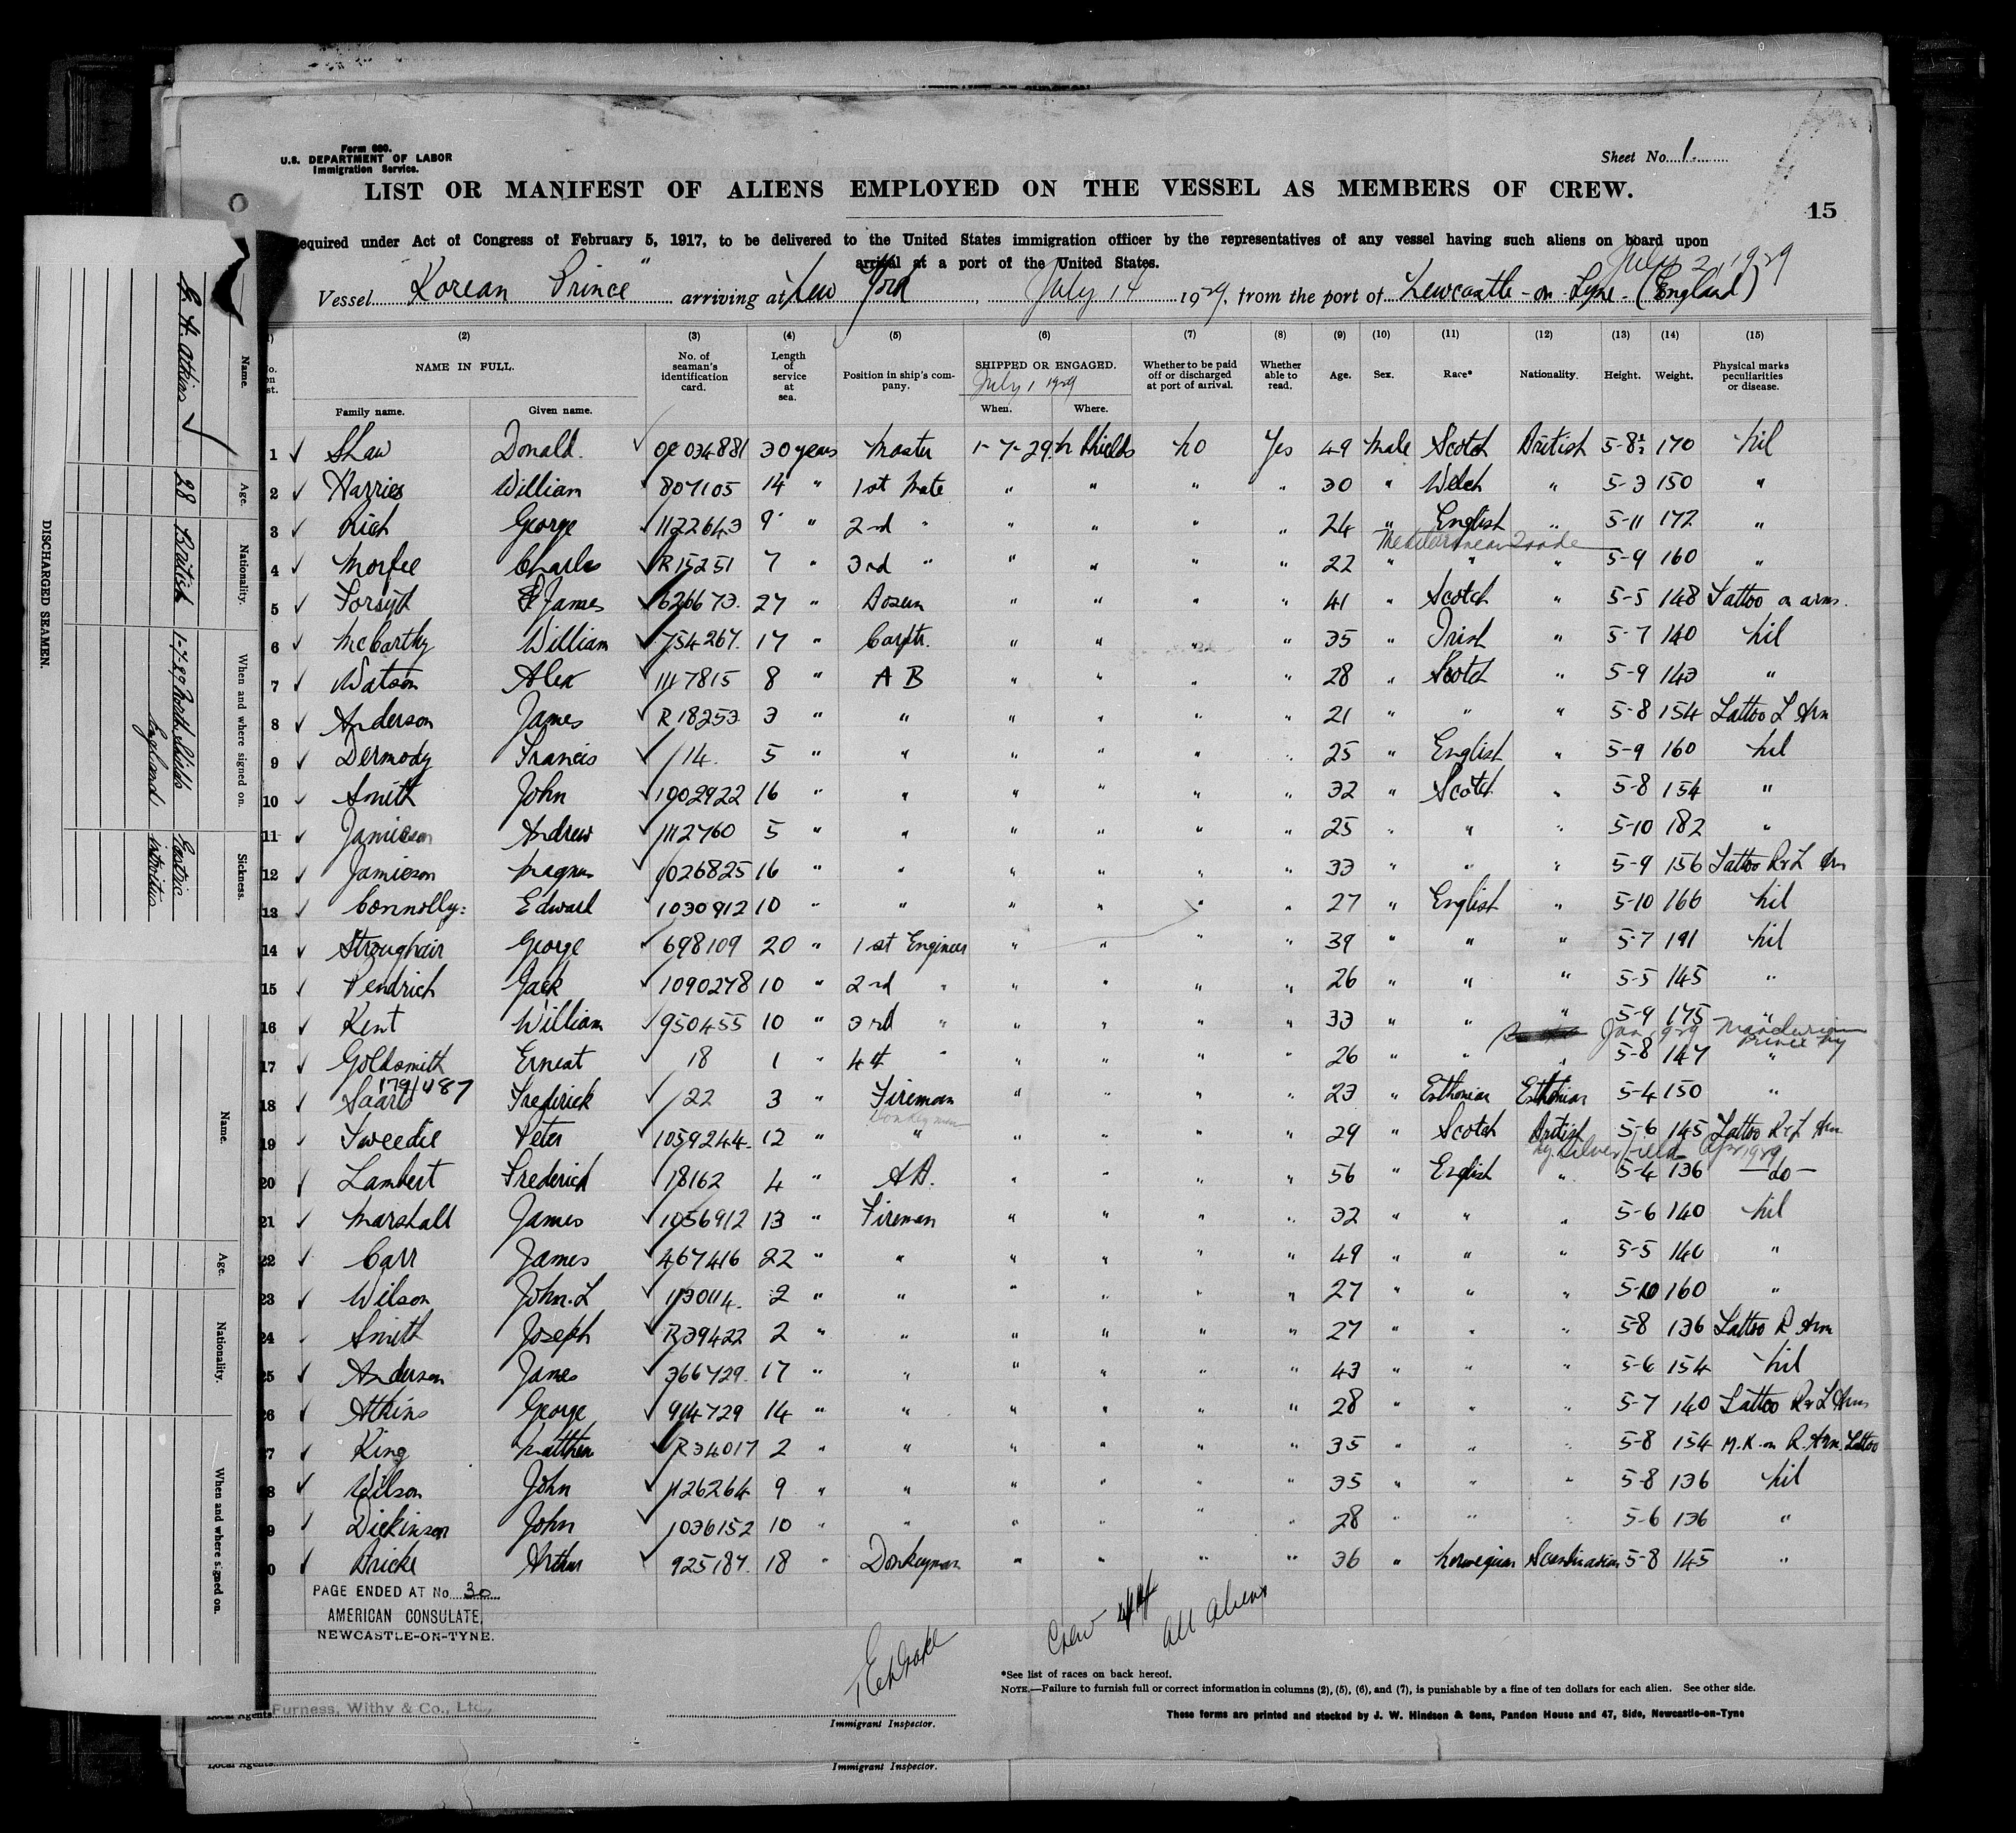 Form 680.
U.S. DEPARTMENT OF LABOR
Immigration Service.
Sheet No. 1.
LIST OR MANIFEST OF ALIENS EMPLOYED ON THE VESSEL AS MEMBERS OF CREW.
15
Required under Act of Congress of February 5, 1917, to be delivered to the United States immigration officer by the representatives of any vessel having such aliens on board upon
arrival at a port of the United States.
July 2, 1929
Vessel "Korean Prince" arriving at New York, July 14 1929, from the port of Newcastle-on-Tyne. (England)
(2) (3) (4) (5) (6) (7) (8) (9) (10) (11) (12) (13) (14) (15)
NAME IN FULL. No. of seaman's identification card. Length of service at sea. Position in ship's company. SHIPPED OR ENGAGED. Whether to be paid off or discharged at port of arrival. Whether able to read. Age. Sex. Race* Nationality. Height. Weight. Physical marks peculiarities or disease.
July 1 1929
Family name. Given name. When. Where.
1 Shaw Donald. 034881 30 years Master 1-7-29 N Shields No Yes 49 Male Scotch British 5-8½ 170 Nil
2 Harries William 807105 14 " 1st Mate " " " " 30 " Welch " 5-3 150 "
3 Rich George 1122643 9 " 2nd " " " " " 24 " English " 5-11 172 "
4 Morfee Charles R15251 7 " 3rd " " " " " 22 " " " 5-9 160 "
5 Forsyth James 626673. 27 " Bosun " " " " 41 " Scotch " 5-5 148 Tattoo on arms.
6 McCarthy William 754267. 17 " Carptr. " " " " 35 " Irish " 5-7 140 Nil
7 Watson Alex 1117815 8 " A B " " " " 28 " Scotch " 5-9 143 "
8 Anderson James R18253 3 " " " " " " 21 " " " 5-8 154 Tattoo L Arm
9 Dermody Francis 14. 5 " " " " " " 25 " English " 5-9 160 Nil
10 Smith John 1002922 16 " " " " " " 32 " Scotch " 5-8 154 "
11 Jamieson Andrew 1112760 5 " " " " " " 25 " " " 5-10 182 "
12 Jamieson Magnus 1026825 16 " " " " " " 33 " " " 5-9 156 Tattoo R & L Arm
13 Connolly Edward 1030912 10 " " " " " " 27 " English " 5-10 166 Nil
14 Stroughair George 698109 20 " 1st Engineer " " " " 39 " " " 5-7 191 Nil
15 Pendrich Jack 1090278 10 " 2nd " " " " " 26 " " " 5-5 145 "
16 Kent William 950455 10 " 3rd " " " " " 33 " " " 5-9 175 "
Jan 1929 Mandurian Prince Ny
17 Goldsmith Ernest 18 1 " 4th " " " " " 26 " " " 5-8 147 "
179/487
18 Saaro Frederick 22 3 " Fireman " " " " 23 " Esthonian Esthonian 5-4 150 "
Donkeyman
19 Tweedie Peter 1059244. 12 " " " " " " 29 " Scotch British 5-6 145 Tattoo R & L Arm
Ny. Silverfield Apr 1929
20 Lambert Frederick 18162 4 " A.B. " " " " 56 " English " 5-4 136 -do-
21 Marshall James 1056912 13 " Fireman " " " " 32 " " " 5-6 140 Nil
22 Carr James 467416 22 " " " " " " 49 " " " 5-5 140 "
23 Wilson John. L 113014. 2 " " " " " " 27 " " " 5-10 160 "
24 Smith Joseph R39422 2 " " " " " " 27 " " " 5-8 136 Tattoo R Arm
25 Anderson James 366729. 17 " " " " " " 43 " " " 5-6 154 Nil
26 Atkins George 914729 14 " " " " " " 28 " " " 5-7 140 Tattoo R & L Arms
27 King Matthew R34017 2 " " " " " " 35 " " " 5-8 154 M.K. on R. Arm. Tattoo
28 Wilson John 1126264 9 " " " " " " 35 " " " 5-8 136 Nil
29 Dickinson John 1036152 10 " " " " " " 28 " " " 5-6 136 "
30 Bricke Arthur 925187. 18 " Donkeyman " " " " 36 " Norwegian Scandinavian 5-8 145 "
PAGE ENDED AT No. 30
AMERICAN CONSULATE,
NEWCASTLE-ON-TYNE.
Crew 44
All aliens
*See list of races on back hereof.
NOTE.—Failure to furnish full or correct information in columns (2), (5), (6), and (7), is punishable by a fine of ten dollars for each alien. See other side.
Local Agents Furness, Withy & Co., Ltd.,
Immigrant Inspector.
These forms are printed and stocked by J. W. Hindson & Sons, Pandon House and 47, Side, Newcastle-on-Tyne
Local Agents
Immigrant Inspector.
DISCHARGED SEAMEN.
Name. Age. Nationality. When and where signed on. Sickness.
G. H. Atkins 28 British 1-7-29 North Shields England Gastric
Name. Age. Nationality. When and where signed on.